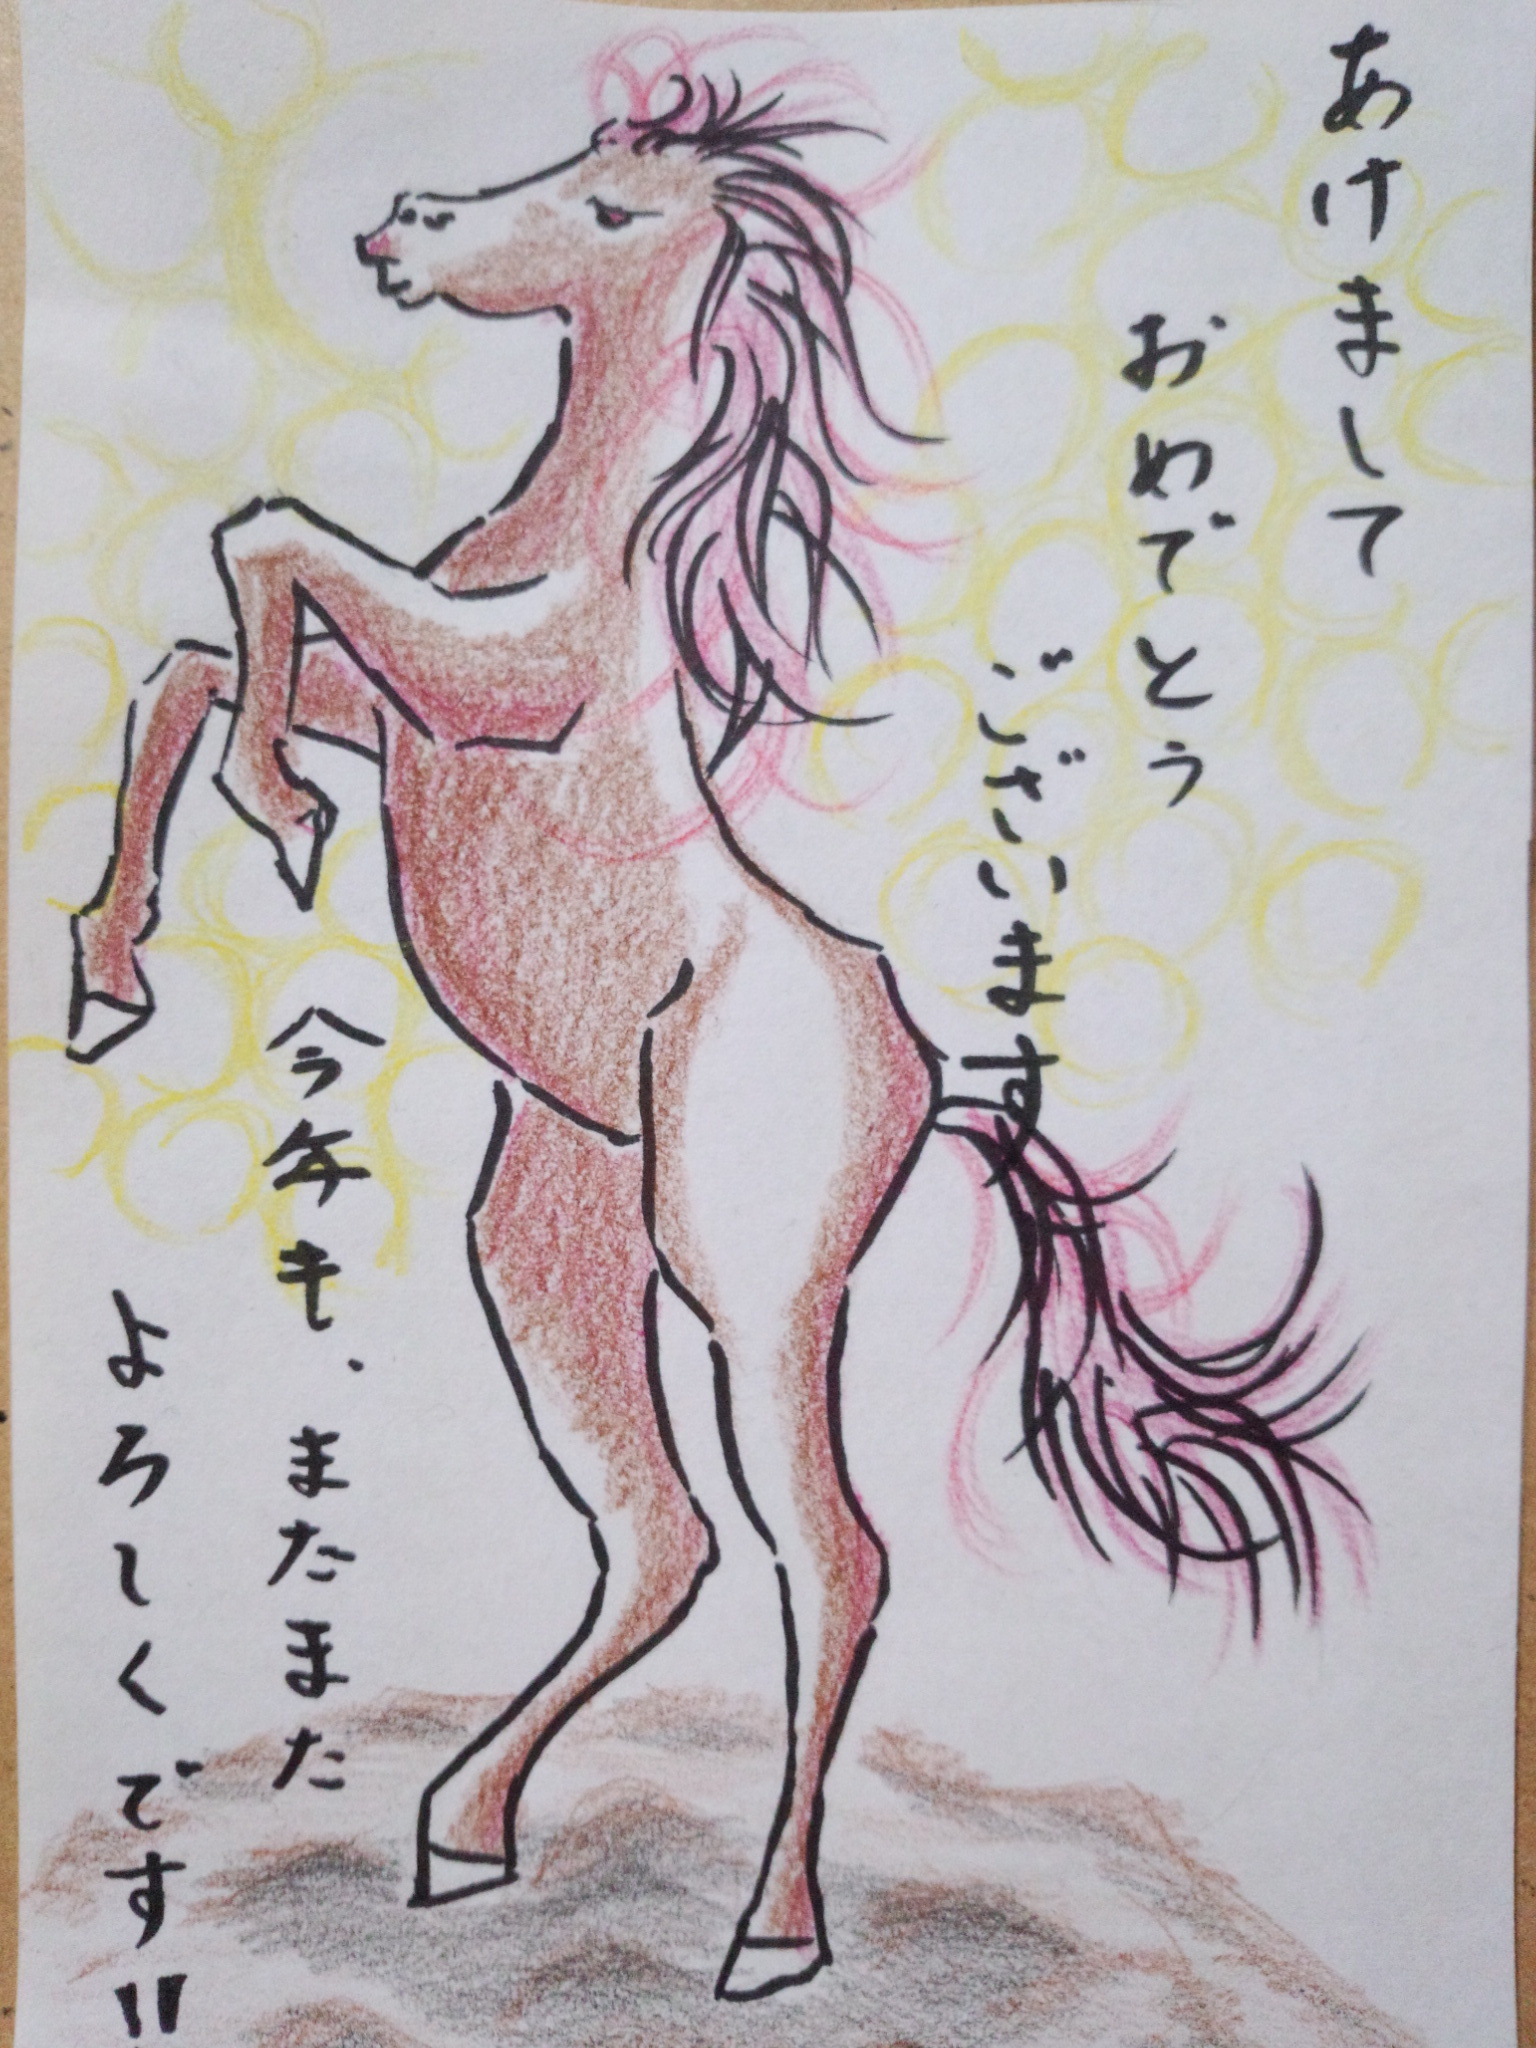 あけまして
おめでとう
ございます
今年も、またまた
よろしくです!!